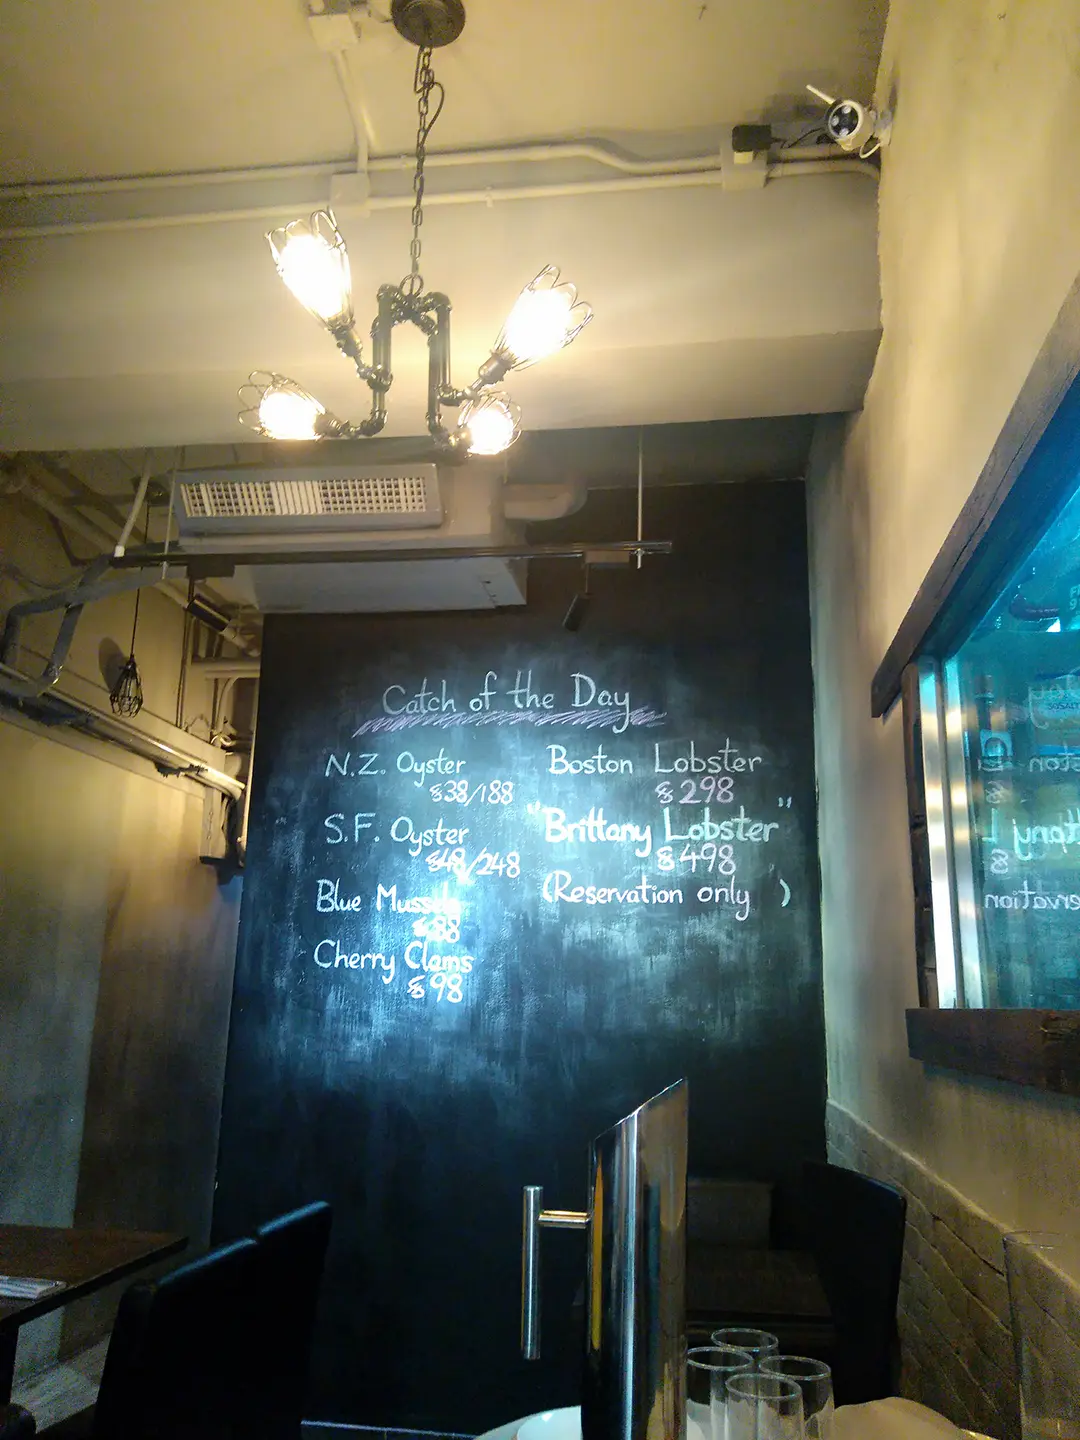 Catch of the Day
N.Z. Oyster
$38/188
S.F. Oyster
$48/248
Blue Mussels
$88
Cherry Clams
$98
Boston Lobster
$298
"Brittany Lobster"
$498
(Reservation only )